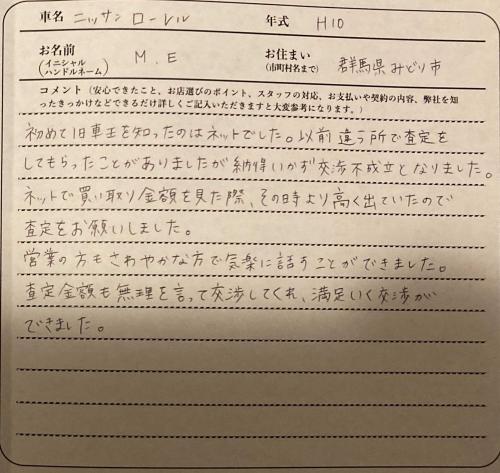 車名 ニッサン ローレル 年式 H10
お名前 (イニシャル ハンドルネーム) M.E お住まい (市町村名まで) 群馬県みどり市
コメント (安心できたこと、お店選びのポイント、スタッフの対応、お支払いや契約の内容、弊社を知
ったきっかけなどできるだけ詳しくご記入いただきますと大変参考になります。)
初めて旧車王を知ったのはネットでした。以前違う所で査定を
してもらったことがありましたが納得いかず交渉不成立となりました。
ネットで買い取り金額を見た際、その時より高く出ていたので
査定をお願いしました。
営業の方もさわやかな方で気楽に話すことができました。
査定金額も無理を言って交渉してくれ、満足いく交渉が
できました。